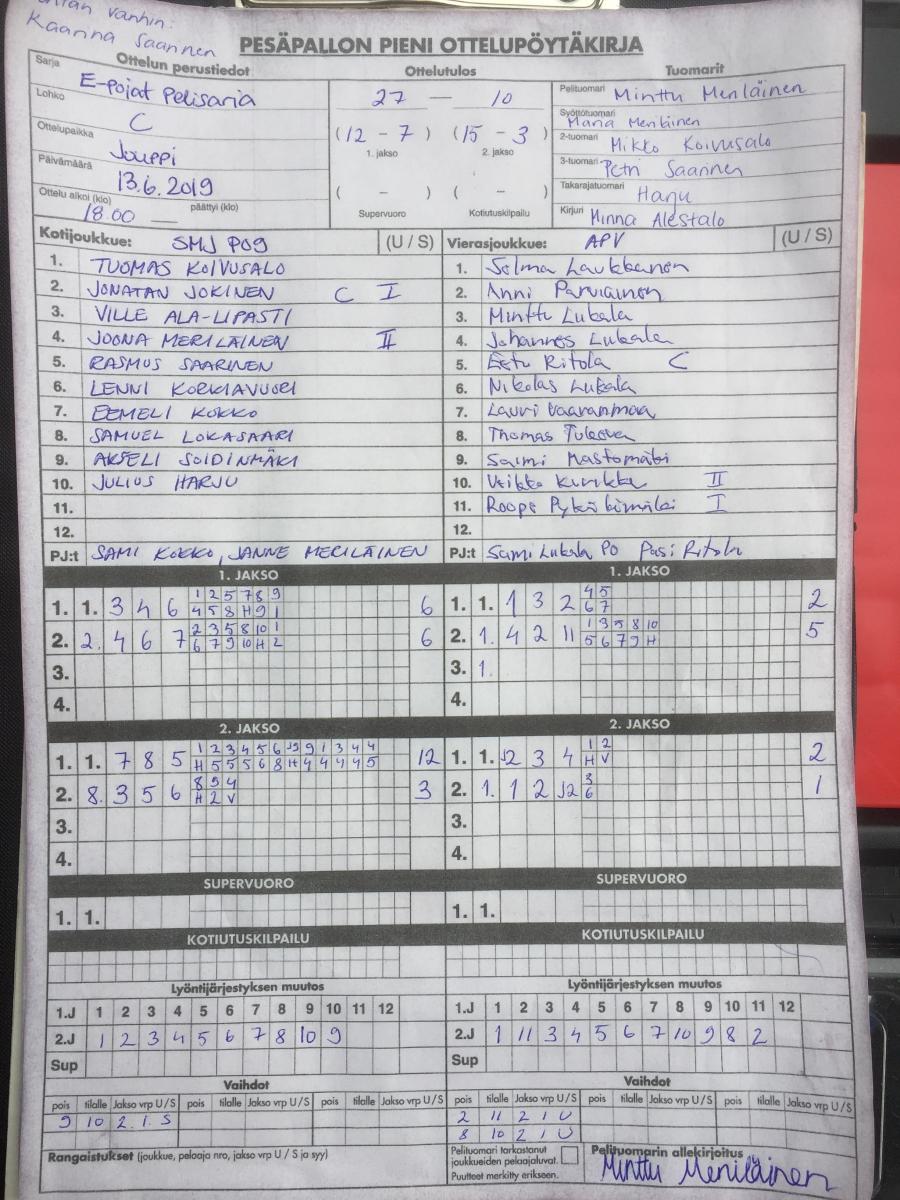 Kaarina Saarinen
PESÄPALLON PIENI OTTELUPÖYTÄKIRJA
Ottelun perustiedot
Sarja E-pojat Pelisarja
Lohko C
Ottelupaikka Jouppi
Päivämäärä 13.6.2019
Ottelu alkoi (klo) 18.00 päättyi (klo)
Ottelutulos
27 – 10
(12 – 7) (15 – 3)
1. jakso 2. jakso
( – ) ( – )
Supervuoro Kotiutuskilpailu
Tuomarit
Pelituomari Minttu Meriläinen
Syöttötuomari Maria Meriläinen
2-tuomari Mikko Koivusalo
3-tuomari Petri Saarinen
Takarajatuomari Harju
Kirjuri Minna Alestalo
Kotijoukkue: SMJ P09 (U / S)
1. TUOMAS KOIVUSALO
2. JONATAN JOKINEN C I
3. VILLE ALA-LIPASTI
4. JOONA MERILÄINEN II
5. RASMUS SAARINEN
6. LENNI KORKIAVUORI
7. EEMELI KOKKO
8. SAMUEL LOKASAARI
9. AKSELI SOIDINMÄKI
10. JULIUS HARJU
11.
12.
PJ:t SAMI KOKKO, JANNE MERILÄINEN
Vierasjoukkue: APV (U / S)
1. Selma Laukkanen
2. Anni Parviainen
3. Minttu Lukala
4. Johannes Lukala
5. Eetu Ritola C
6. Nikolas Lukala
7. Lauri Vaaranmaa
8. Thomas
9. Saimi Mastomäki
10. Veikko Kurikka II
11. Roope I
12.
PJ:t Sami Lukala PO Pasi Ritola
1. JAKSO
1. 1. 3 4 6 1 2 5 7 8 9 6
4 5 8 H 9 1
2. 2. 4 6 7 2 3 5 8 10 1 6
6 7 9 10 H 2
3.
4.
1. JAKSO
1. 1. 1 3 2 4 5 2
6 7
2. 1. 4 2 11 1 3 5 8 10 5
5 6 7 9 H
3. 1.
4.
2. JAKSO
1. 1. 7 8 5 1 2 3 4 5 6 J5 9 1 3 4 4 12
H 5 5 5 6 8 H 4 4 4 4 5
2. 8. 3 5 6 8 5 4 3
H 2 V
3.
4.
2. JAKSO
1. 1. J2 3 4 1 2 2
H V
2. 1. 1 2 J2 3 1
6
3.
4.
SUPERVUORO
1. 1.
SUPERVUORO
1. 1.
KOTIUTUSKILPAILU
KOTIUTUSKILPAILU
Lyöntijärjestyksen muutos
1.J 1 2 3 4 5 6 7 8 9 10 11 12
2.J 1 2 3 4 5 6 7 8 10 9
Sup
Lyöntijärjestyksen muutos
1.J 1 2 3 4 5 6 7 8 9 10 11 12
2.J 1 11 3 4 5 6 7 10 9 8 2
Sup
Vaihdot
pois tilalle Jakso vrp U/S pois tilalle Jakso vrp U/S pois tilalle Jakso vrp U/S
9 10 2. 1. S
Vaihdot
pois tilalle Jakso vrp U/S pois tilalle Jakso vrp U/S pois tilalle Jakso vrp U/S
2 11 2 1 U
8 10 2 1 U
Rangaistukset (joukkue, pelaaja nro, jakso vrp U / S ja syy)
Pelituomari tarkastanut
joukkueiden pelaajaluvat.
Puutteet merkitty erikseen.
Pelituomarin allekirjoitus
Minttu Meriläinen